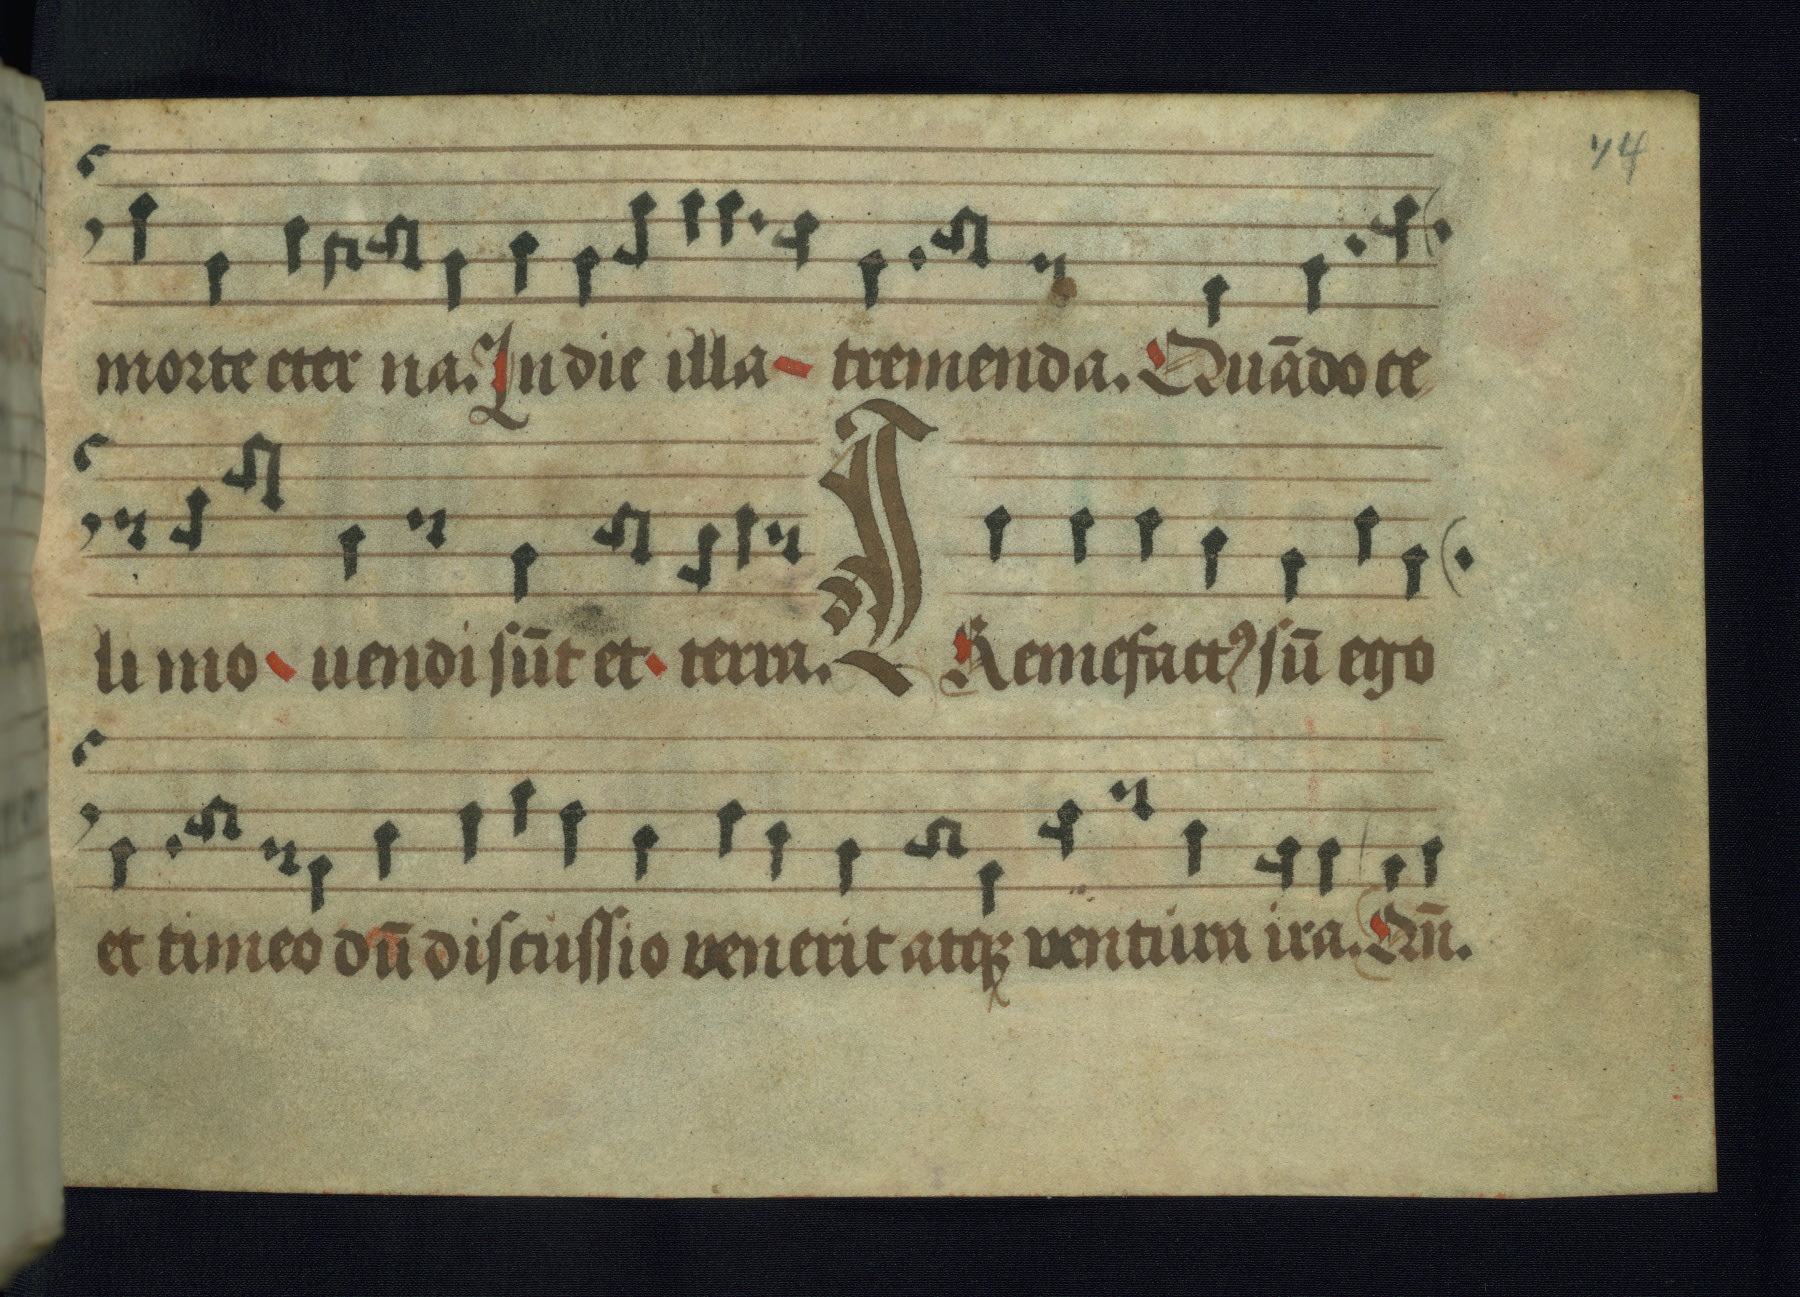 74
morte eter na. In die illa tremenda. Quādo ce
li mo uendi sūt et terra. T Remefactꝰ sū ego
et timeo dū discussio venerit atqꝫ ventura ira. Qñ.